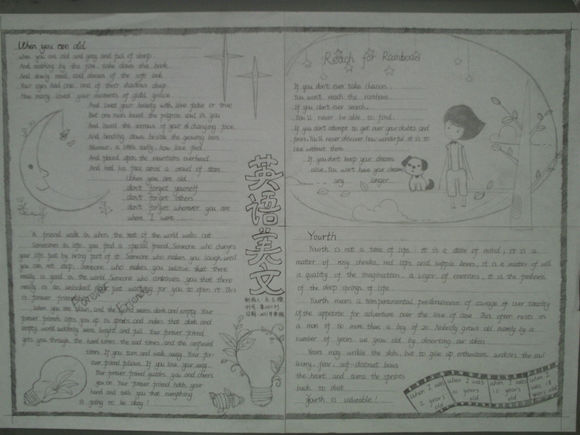 When you are old
When you are old and grey and full of sleep
And nodding by the fire, take down this book
And slowly read, and dream of the soft look
Your eyes had once, and of their shadows deep
How many loved your moments of glad grace
And loved your beauty with love false or true
But one man loved the pilgrim soul in you
And loved the sorrows of your changing face
And bending down beside the glowing bars
Murmur, a little sadly, how love fled
And paced upon the mountains overhead
And hid his face among a crowd of stars
When you are old
don't forget yourself
don't forget others
don't forget wherever you are
where I want
Reach for Rainbows
If you don't ever take chances
You won't reach the rainbows
If you don't ever search
You'll never be able to find
If you don't attempt to get over your doubts and
fears, You'll never discover how wonderful it is to
live without them
If you don't keep your dreams
alive, You won't have your dreams
any longer
英语美文
A friend walk in when the rest of the world walks out
Sometimes in life, you find a special friend, Someone who changes
your life just by being part of it. Someone who makes you laugh until
you can not stop. Someone who makes you believe that there
really is good in the world. Someone who convinces you that there
really is an unlocked door just waiting for you to open it. This
is forever friendship
Forever Friend
When you are down, and the world seems dark and empty, Your
forever friend lifts you up in spirits and makes that dark and
empty world suddenly seem bright and full. Your forever friend
gets you through the hard times, the sad times, and the confused
times. If you turn and walk away, Your for-
ever friend follows. If you lose your way,
Your forever friend guides you and cheers
you on. Your forever friend holds your
hand and tells you that everything
is going to be okay!
Yourth
Yourth is not a time of life; it is a state of mind; it is a
matter of rosy cheeks, red lips and supple knees; it is a matter of will
a quality of the imagination, a vigor of emotions; it is the freshness
of the deep springs of life
Yourth means a temperamental predominance of courage over timidity
of the appetite for adventure over the love of ease. This often exists in
a man of 60 more than a boy of 20. Nobody grows old merely by a
number of years, we grow old by deserting our ideals
Years may wrinkle the skin, but to give up enthusiasm wrinkles the soul
Worry, fear, self-distrust bows
the heart and turns the spirits
back to dust
Yourth is valuable!
When I was
years
old
when I was
years
old
when I was
years
old
when I was
years
old